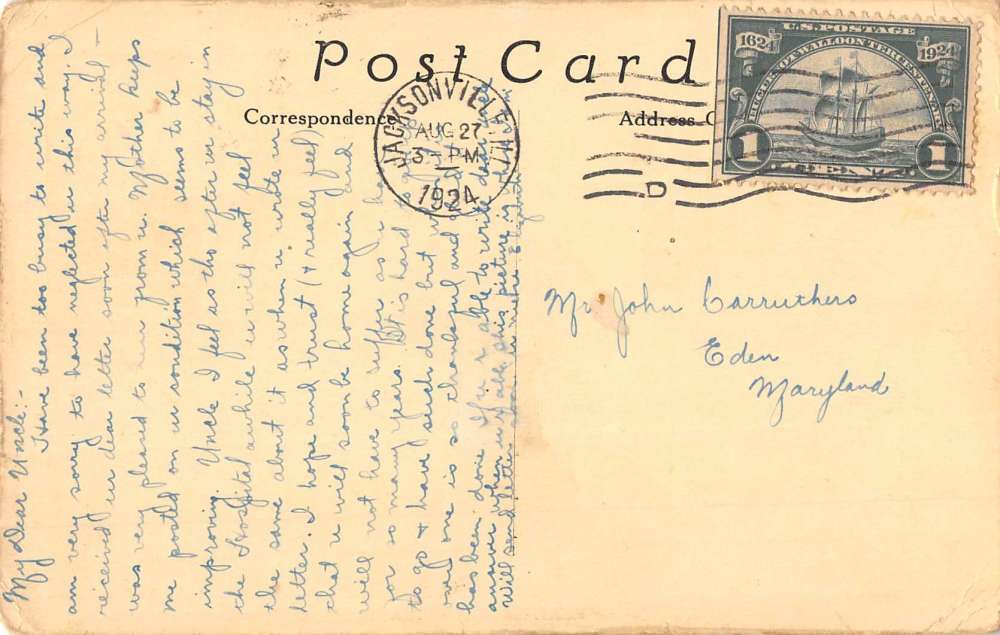 Post Card
Correspondence
Address
JACKSONVILLE, ILL.
AUG 27
3 - PM
1924
D
U.S. POSTAGE
1624 1924
HUGUENOT WALLOON TERCENTENARY
1 CENT 1
Mr John Carruthers
Eden
Maryland
My Dear Uncle:-
Have been too busy to write and
am very sorry to have neglected u this way. I
received ur dear letter soon after my arrival -
was very pleased to hear from u. Mother keeps
me posted on ur condition which seems to be
improving. Uncle I feel as tho after ur stay in
the Hospital awhile u will not feel
the same about it as when u wrote ur
letter. I hope and trust (& really feel)
that u will soon be home again and
will not have to suffer as u have
for so many years. It is hard
to go & have such done but
over one is so thankful and
has been done. If u r able to write dear
answer when u r able this picture is
will send letter